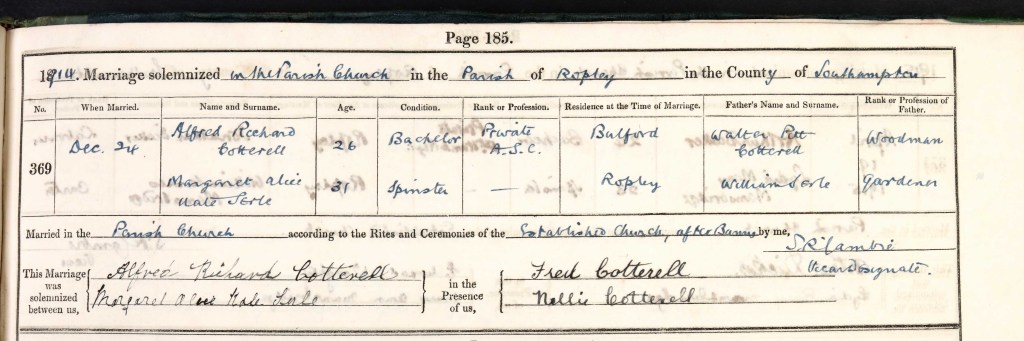 Page 185.
1914. Marriage solemnized in the Parish Church in the Parish of Ropley in the County of Southampton
No. When Married. Name and Surname. Age. Condition. Rank or Profession. Residence at the Time of Marriage. Father's Name and Surname. Rank or Profession of Father.
369 Dec. 24 Alfred Richard Cotterell 26 Bachelor Private A.S.C. Bulford Walter Pitt Cotterell Woodman
Margaret Alice Kate Serle 31 Spinster — Ropley William Serle Gardener
Married in the Parish Church according to the Rites and Ceremonies of the Established Church, after Banns by me,
Vicar Designate.
This Marriage was solemnized between us, Alfred Richard Cotterell in the Presence of us, Fred Cotterell
Margaret Alice Kate Serle Nellie Cotterell